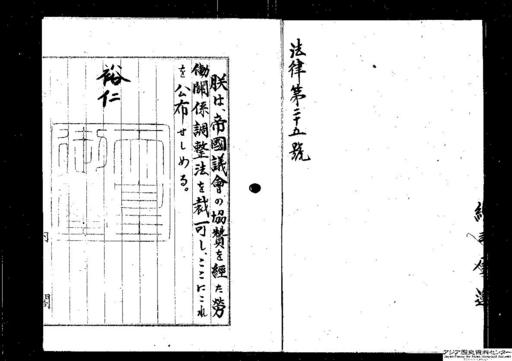 法律第二十五號
朕は、帝國議會の協贊を經た勞
働關係調整法を裁可し、ここにこれ
を公布せしめる。
裕仁
天皇
御璽
閣
アジア歴史資料センター